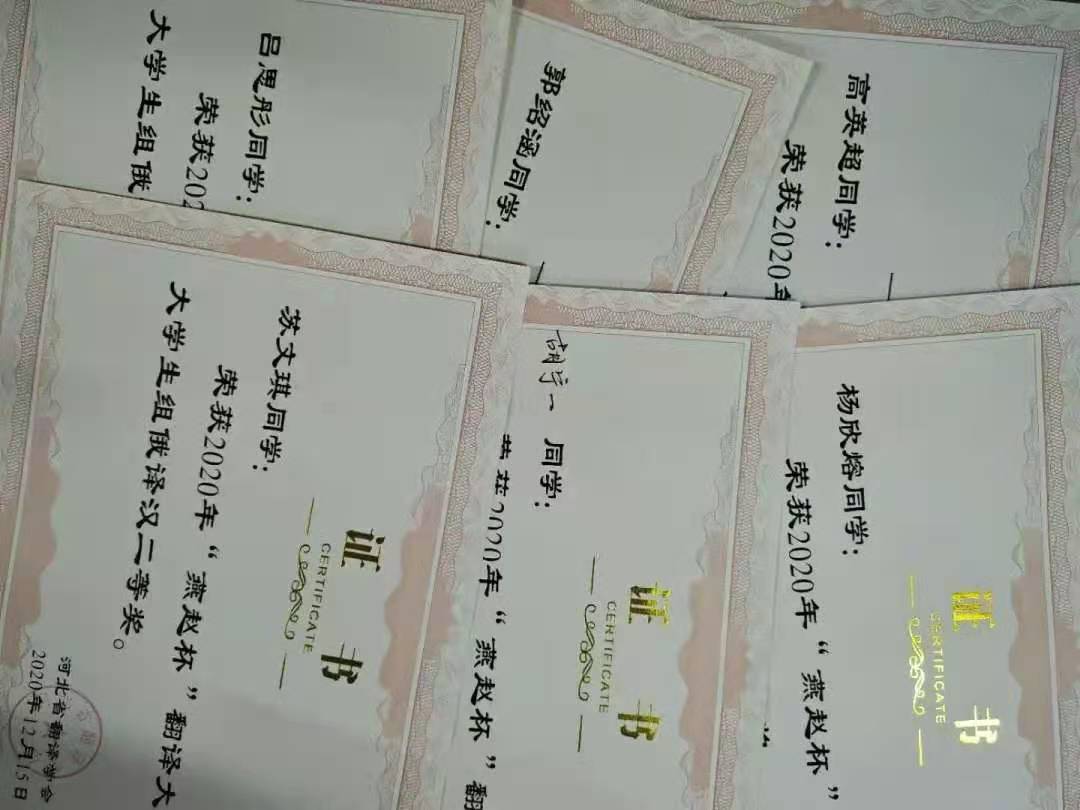 高英超同学：
荣获2020年
郭绍涵同学：
吕思彤同学：
荣获202
大学生组俄
证书
CERTIFICATE
杨欣熔同学：
荣获2020年“燕赵杯”
证书
CERTIFICATE
胡宇一 同学：
荣获2020年“燕赵杯”翻
证书
CERTIFICATE
苏文琪同学：
荣获2020年“燕赵杯”翻译大
大学生组俄译汉二等奖。
河北省翻译学会
2020年12月15日